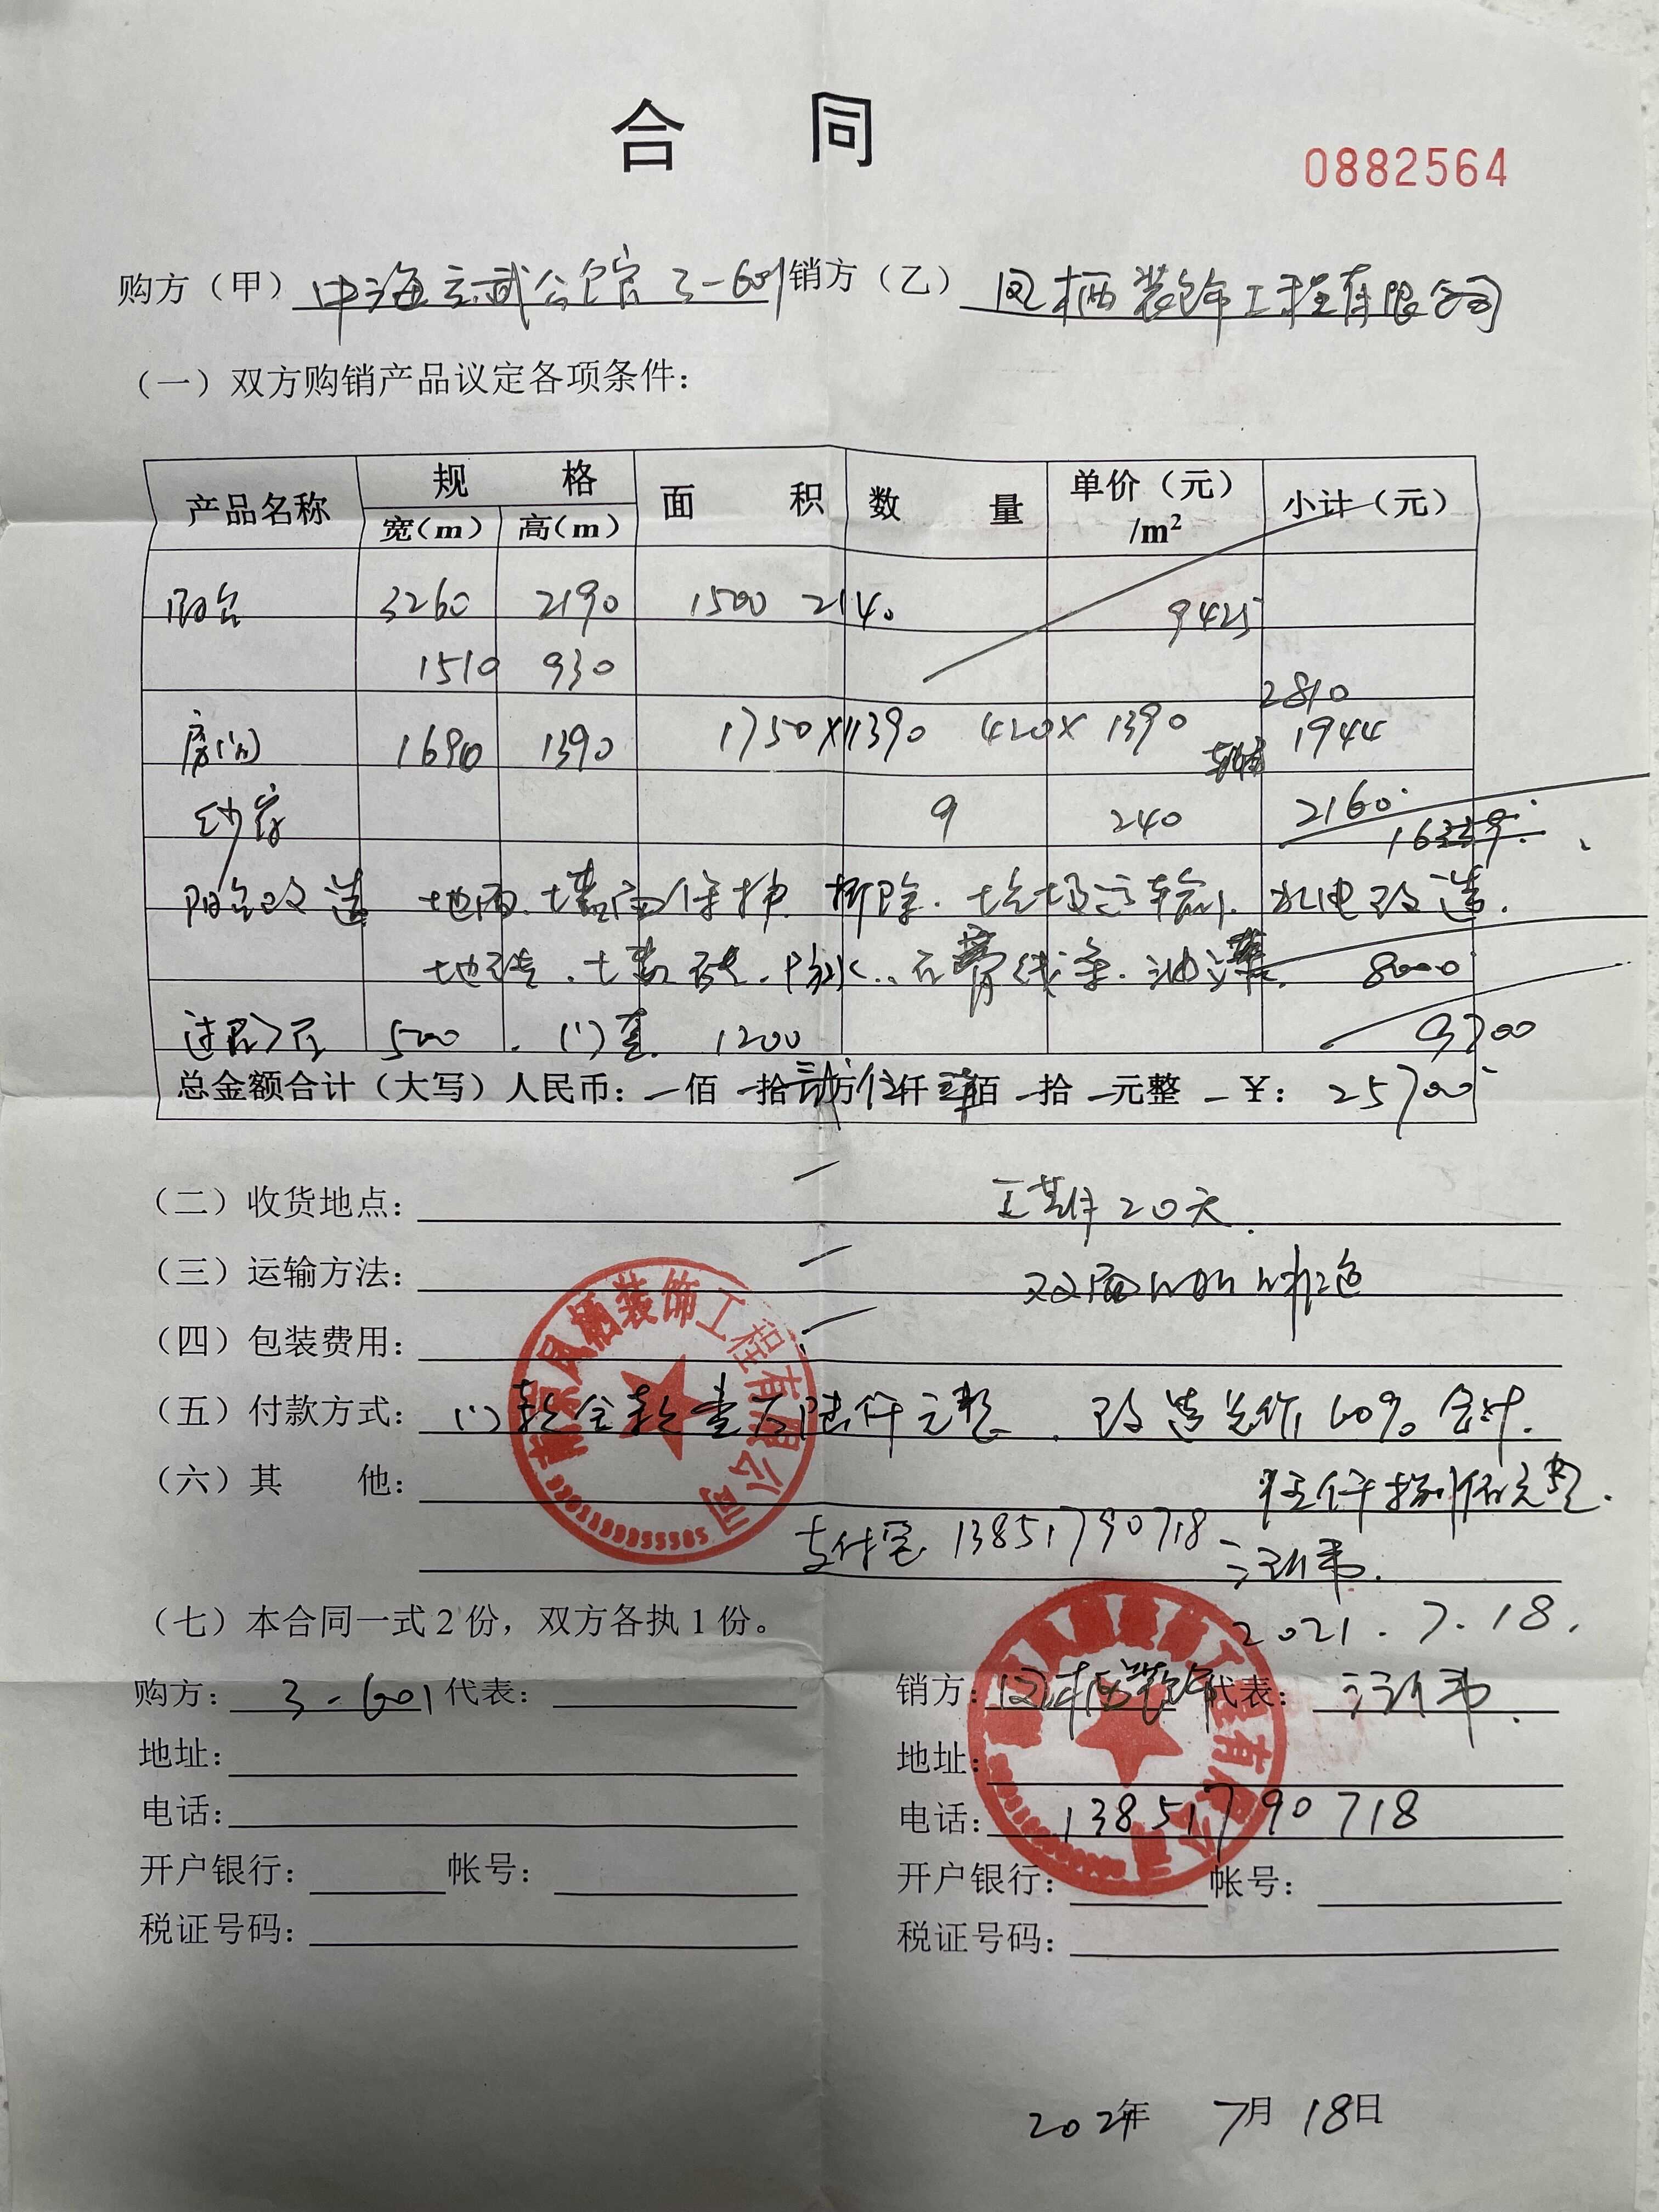 合 同
0882564
购方（甲）中海玄武公馆 3-601 销方（乙）凤栖装饰工程有限公司
（一）双方购销产品议定各项条件：
产品名称 规 格 面 积 数 量 单价（元）/m² 小计（元）
宽(m) 高(m)
阳台 3260 2190 1500 2140 9425
1510 930
2810
房间 1690 1390 1750×1390 420×1390 1944
纱窗 9 240 2160
阳台改造 地面.墙面保护.拆除.垃圾运输.水电改造.
地砖.墙砖.防水.石膏线条.油漆. 8000
500 . 门套. 1200 9700
总金额合计（大写）人民币：一佰 一拾 贰万 伍仟 柒佰 一拾 一元整 一￥：25700
（二）收货地点： 工期20天.
（三）运输方法： 双面
（四）包装费用：
（五）付款方式： 门款全款壹万陆仟元整 . 改造总价60% 合计.
（六）其 他： 伍仟捌佰元整.
支付宝 13851790718
2021.7.18.
（七）本合同一式2份，双方各执1份。
购方：3-601 代表： 销方：凤栖装饰 代表：
地址： 地址：
电话： 电话：13851790718
开户银行： 帐号： 开户银行： 帐号：
税证号码： 税证号码：
2021年 7月 18日
凤栖装饰工程有限公司
装饰工程有限公司